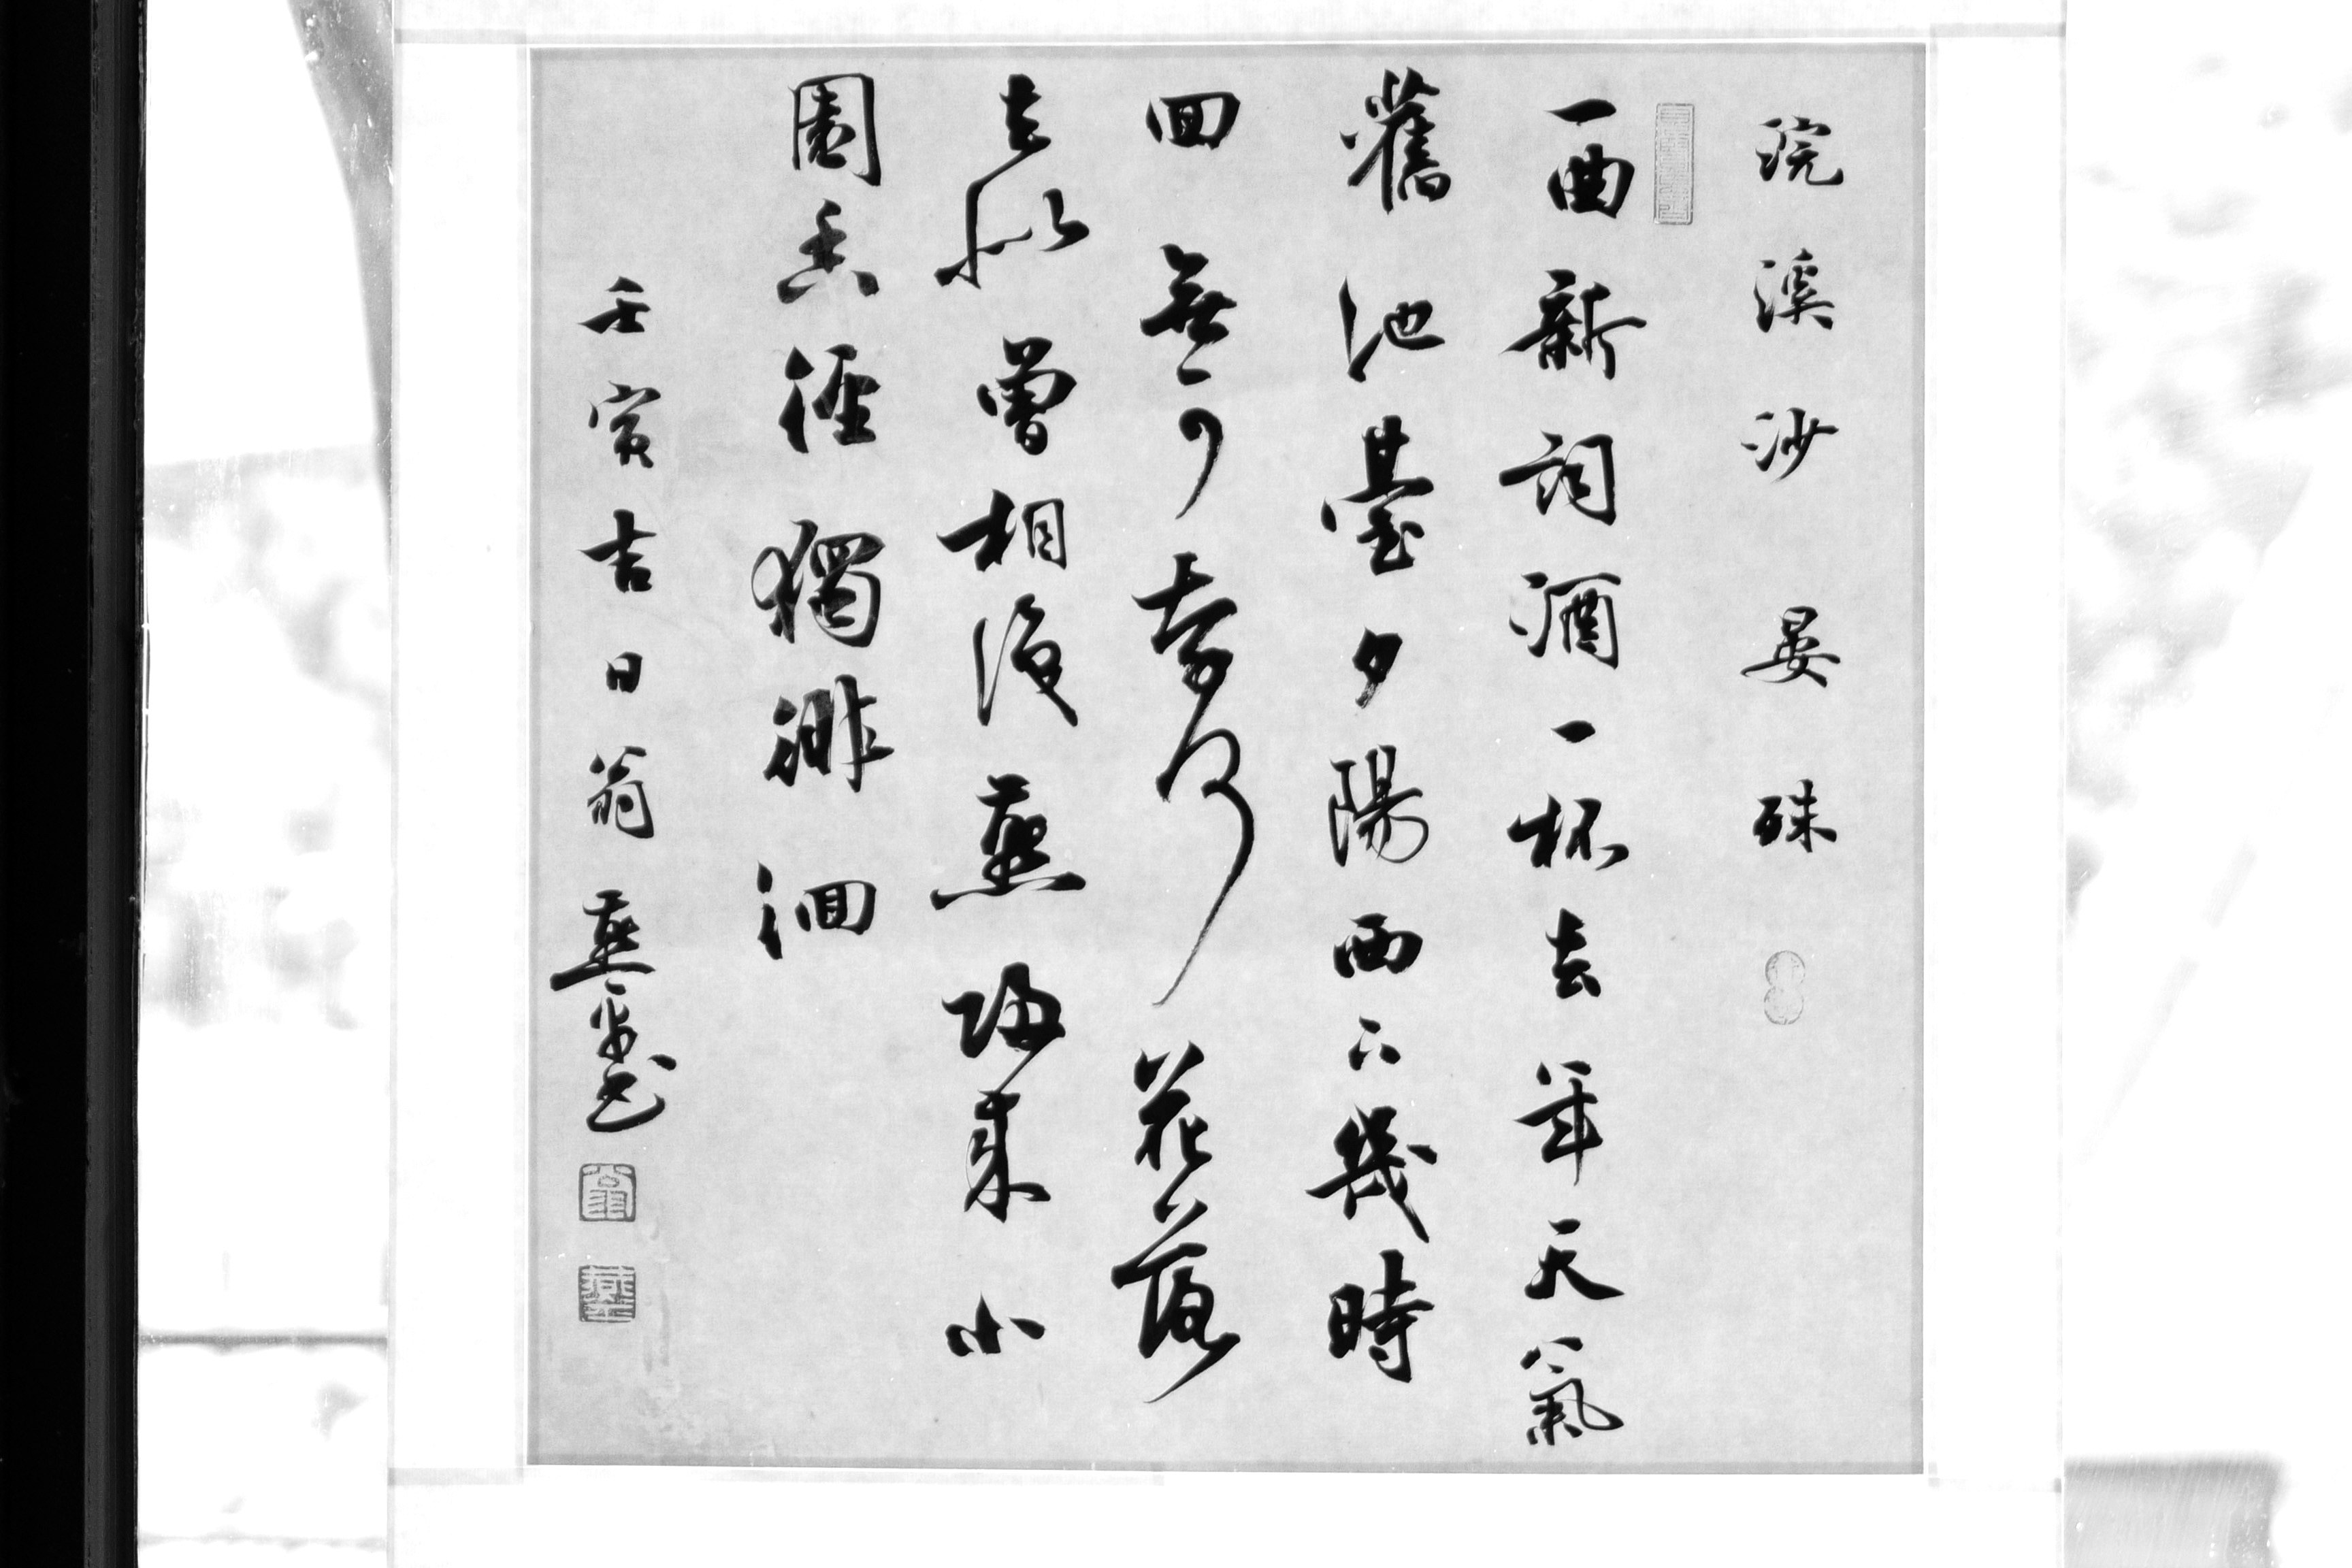 浣溪沙 晏殊
一曲新詞酒一杯去年天氣
舊池臺夕陽西下幾時
回無可奈何花落
去似曾相識燕歸來小
園香徑獨徘徊
壬寅吉日翁燕書
翁